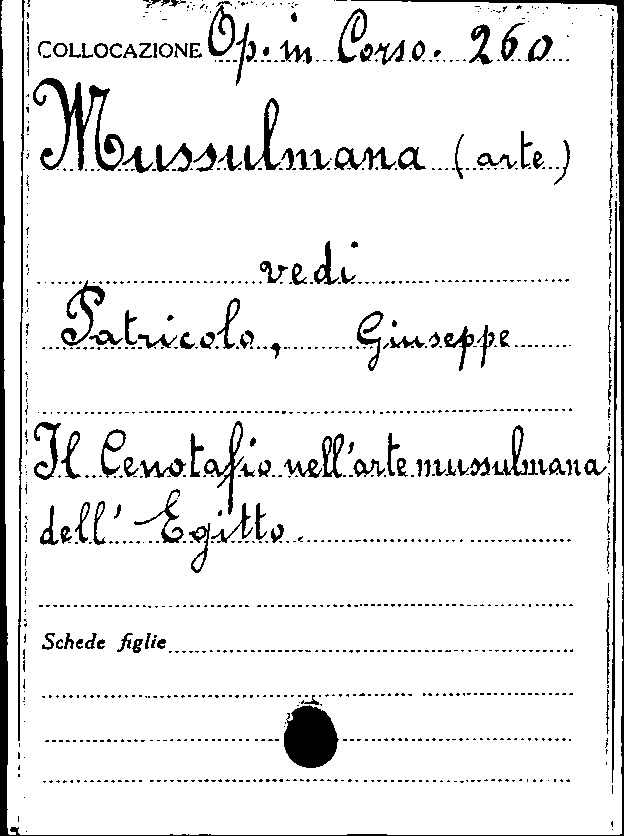 COLLOCAZIONE Op. in Corso. 260
Mussulmana (arte)
vedi
Patricolo, Giuseppe
Il Cenotafio nell'arte mussulmana
dell' Egitto.
Schede figlie